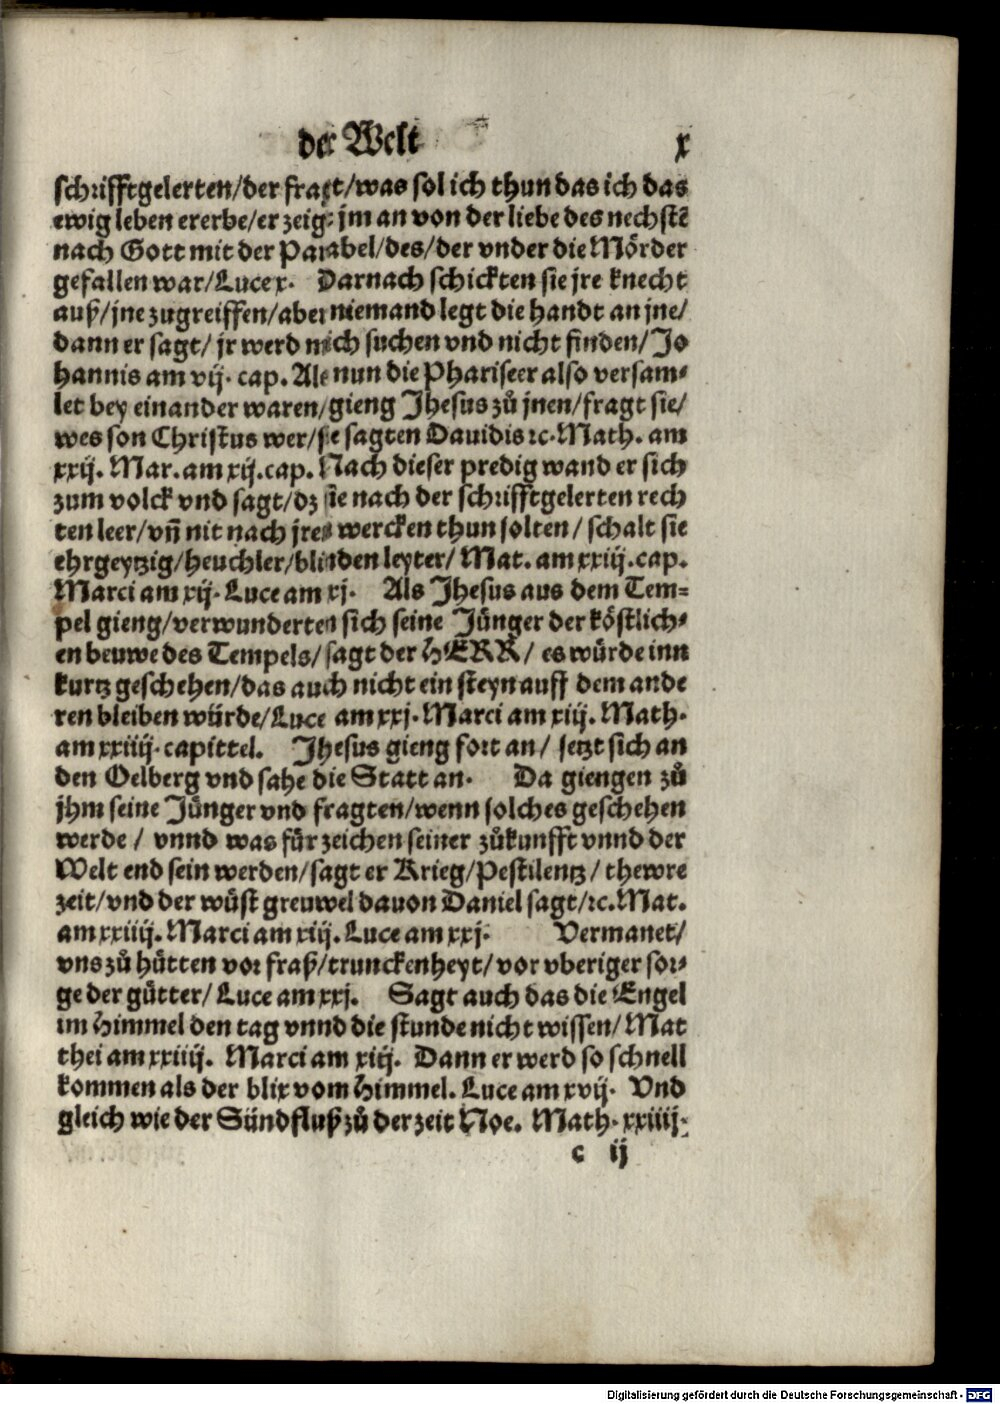 der Welt x
schrifftgelerten/der fragt/was sol ich thun das ich das
ewig leben ererbe/er zeigt jm an von der liebe des nechstẽ
nach Gott mit der Parabel/des/der vnder die Mörder
gefallen war/Luce x. Darnach schickten sie jre knecht
auß/jne zugreiffen/aber niemand legt die handt an jne/
dann er sagt/ jr werd mich suchen vnd nicht finden/Jo
hannis am vij. cap. Als nun die Phariseer also versam⸗
let bey einander waren/gieng Jhesus zů jnen/fragt sie/
wes son Christus wer/sie sagten Dauidis ꝛc. Math. am
xxij. Mar. am xij.cap. Nach dieser predig wand er sich
zum volck vnd sagt/dz sie nach der schrifftgelerten rech
ten leer/vñ nit nach jren wercken thun solten/ schalt sie
ehrgeytzig/heuchler/blinden leyter/ Mat. am xxiij.cap.
Marci am xij. Luce am xj. Als Jhesus aus dem Tem⸗
pel gieng/verwunderten sich seine Jünger der köstlich⸗
en beuwe des Tempels/sagt der HERR/ es würde inn
kurtz geschehen/das auch nicht ein steyn auff dem ande
ren bleiben würde/Luce am xxj. Marci am xiij. Math.
am xxiiij. capittel. Jhesus gieng fort an/ setzt sich an
den Oelberg vnd sahe die Statt an. Da giengen zů
jhm seine Jünger vnd fragten/wenn solches geschehen
werde / vnnd was für zeichen seiner zůkunfft vnnd der
Welt end sein werden/sagt er Krieg/Pestilentz/ thewre
zeit/vnd der wüst greuwel dauon Daniel sagt/ꝛc. Mat.
am xxiiij. Marci am xiij. Luce am xxj. Vermanet/
vns zů hütten vor fraß/trunckenheyt/vor vberiger sor⸗
ge der gütter/ Luce am xxj. Sagt auch das die Engel
im himmel den tag vnnd die stunde nicht wissen/Mat
thei am xxiiij. Marci am xiij. Dann er werd so schnell
kommen als der blix vom himmel. Luce am xvij. Vnd
gleich wie der Sündfluß zů der zeit Noe. Math. xxiiij.
c ij
Digitalisierung gefördert durch die Deutsche Forschungsgemeinschaft - DFG